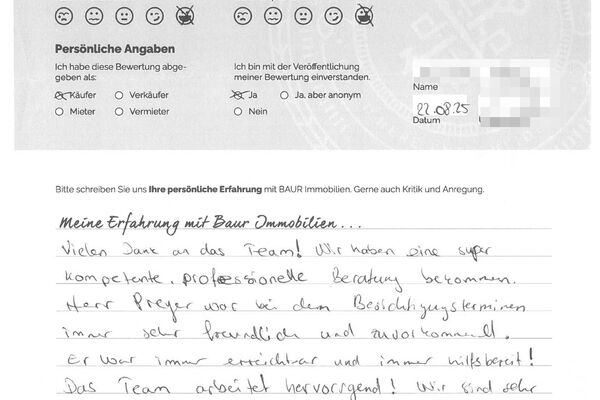 Persönliche Angaben
Ich habe diese Bewertung abge-
geben als:
Käufer
Verkäufer
Mieter
Vermieter
Ich bin mit der Veröffentlichung
meiner Bewertung einverstanden.
Ja
Ja, aber anonym
Nein
Name
22.08.25
Datum
Bitte schreiben Sie uns Ihre persönliche Erfahrung mit BAUR Immobilien. Gerne auch Kritik und Anregung.
Meine Erfahrung mit Baur Immobilien...
Vielen Dank an das Team! Wir haben eine super
kompetente, professionelle Beratung bekommen.
Herr Preyer war bei dem Besichtigungsterminen
immer sehr freundlich und zuvorkommend.
Er war immer erreichbar und immer hilfsbereit!
Das Team arbeitet hervorrgend! Wir sind sehr